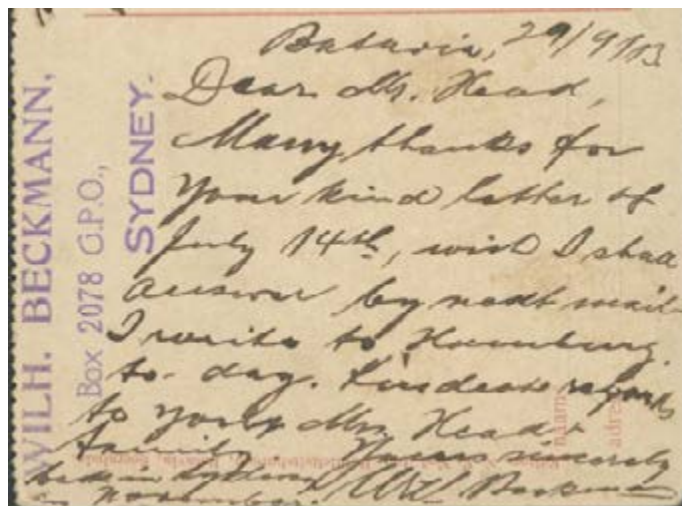 WILH. BECKMANN,
Box 2078 G.P.O.,
SYDNEY.
Batavia, 29/9/13
Dear Mr. Head,
Many thanks for
your kind letter of
July 14th, wich I shall
answer by next mail.
I write to Hamburg
to-day. Kindest regards
to you & Mrs. Head &
family. Yours sincerely
back in Sydney Wilh Beckmann
in November.
naam
adres